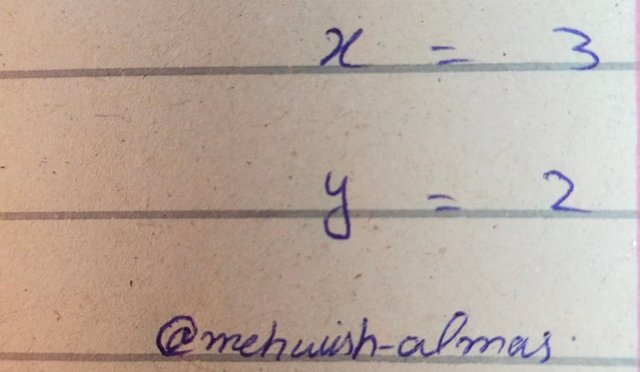 x = 3
y = 2
@mehwish-almas